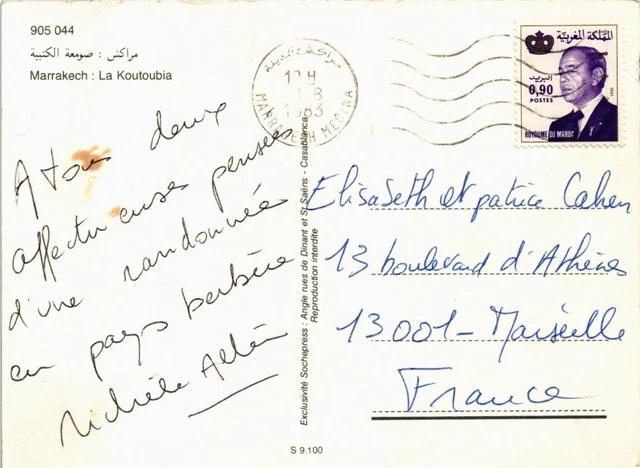 905 044
مراكش : صومعة الكتبية
Marrakech : La Koutoubia
A tous deux
affectueuses pensées
d'une randonnée
en pays berbère
Michèle
مراكش المدينة
12 H
8
1983
MARRAKECH MEDINA
المملكة المغربية
البريد
0,90
POSTES
ROYAUME DU MAROC
Exclusivité Sochepress : Angle rues de Dinant et St Saëns - Casablanca
Reproduction interdite
Elisabeth et patrice Cahen
13 boulevard d'Athènes
13001 - Marseille
France
S 9.100